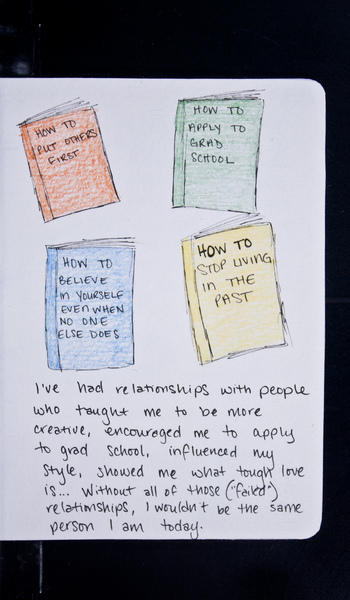 HOW TO
PUT OTHERS
FIRST
HOW TO
APPLY TO
GRAD
SCHOOL
HOW TO
BELIEVE
in YOURSELF
EVEN WHEN
NO ONE
ELSE DOES
HOW TO
STOP LIVING
in THE
PAST
I've had relationships with people
who taught me to be more
creative, encouraged me to apply
to grad school, influenced my
style, showed me what tough love
is... Without all of those ("failed")
relationships, I wouldn't be the same
person I am today.